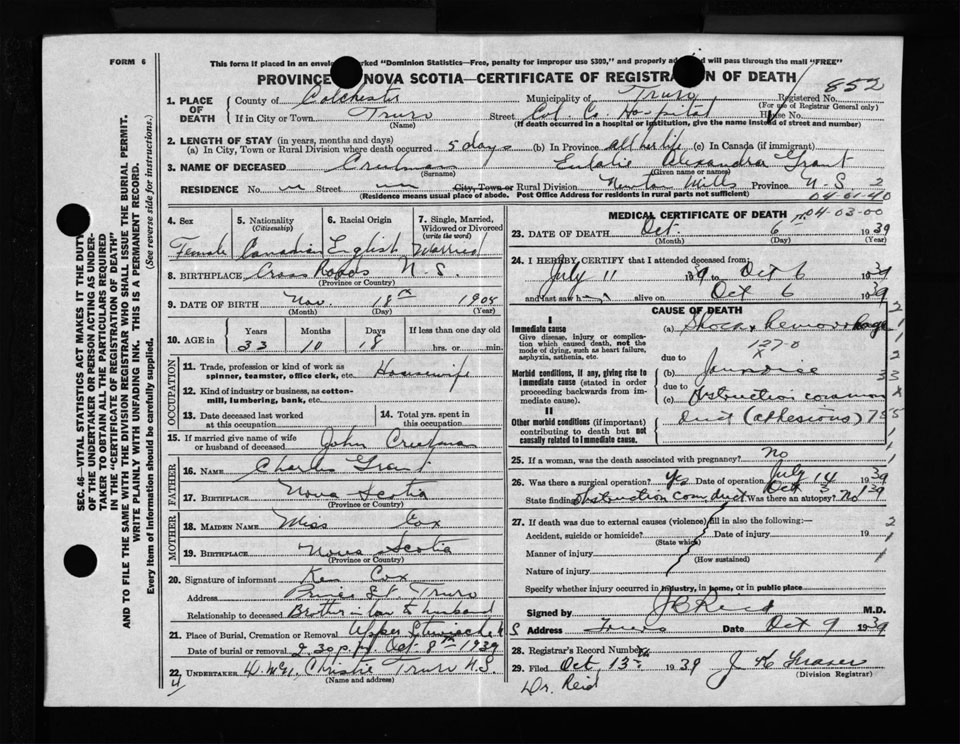 FORM 6
This form if placed in an envelope marked "Dominion Statistics—Free, penalty for improper use $300," and properly addressed will pass through the mail "FREE"
PROVINCE OF NOVA SCOTIA—CERTIFICATE OF REGISTRATION OF DEATH
852
Registered No.
(For use of Registrar General only)
1. PLACE OF DEATH
County of Colchester Municipality of Truro
If in City or Town Truro Street Col. Co Hospital House No.
(Name) (If death occurred in a hospital or institution, give the name instead of street and number)
2. LENGTH OF STAY (in years, months and days)
(a) In City, Town or Rural Division where death occurred 5 days (b) In Province all her life (c) In Canada (if immigrant)
3. NAME OF DECEASED Creelman Eulalie Alexandra Grant
(Surname) (Given name or names)
RESIDENCE No. Street City, Town or Rural Division Newton Mills Province N-S 2
(Residence means usual place of abode. Post Office Address for residents in rural parts not sufficient)
04-01-40
04-03-00
4. Sex
Female
5. Nationality
(Citizenship)
Canadian
6. Racial Origin
English
7. Single, Married, Widowed or Divorced
(write the word)
Married
8. BIRTHPLACE Cross Roads N.S.
(Province or Country)
9. DATE OF BIRTH Nov. 18th 1905
(Month) (Day) (Year)
10. AGE in
Years Months Days If less than one day old
33 10 18 hrs. or min.
OCCUPATION
11. Trade, profession or kind of work as spinner, teamster, office clerk, etc. Housewife
12. Kind of industry or business, as cotton-mill, lumbering, bank, etc.
13. Date deceased last worked at this occupation
14. Total yrs. spent in this occupation
15. If married give name of wife or husband of deceased John Creelman
FATHER
16. NAME Charles Grant
17. BIRTHPLACE Nova Scotia
(Province or Country)
MOTHER
18. MAIDEN NAME Miss Cox
19. BIRTHPLACE Nova Scotia
(Province or Country)
20. Signature of informant Ken Cox
Address Prince St Truro
Relationship to deceased Brother in law to husband
21. Place of Burial, Cremation or Removal Upper Stewiacke
Date of burial or removal 2.30 p.m. Oct. 8th 1939
22. UNDERTAKER Christie Truro N.S.
(Name and address)
4
MEDICAL CERTIFICATE OF DEATH
23. DATE OF DEATH Oct. 6 1939
(Month) (Day) (Year)
24. I HEREBY CERTIFY that I attended deceased from
July 11 1939 to Oct 6 1939
and last saw h alive on Oct 6 1939
CAUSE OF DEATH
I
Immediate cause
Give disease, injury or complication which caused death, not the mode of dying, such as heart failure, asphyxia, asthenia, etc.
(a) Shock & hemorrhage
127-0
due to
Morbid conditions, if any, giving rise to immediate cause (stated in order proceeding backwards from immediate cause).
(b) Jaundice
due to
(c) Obstruction common
duct (adhesions)
II
Other morbid conditions (if important) contributing to death but not causally related to immediate cause.
25. If a woman, was the death associated with pregnancy? No
26. Was there a surgical operation? Yes Date of operation July 14 1939
Oct 3 1939
State finding Obstruction com. duct Was there an autopsy? No
27. If death was due to external causes (violence) fill in also the following:—
Accident, suicide or homicide? Date of injury 19
(State which)
Manner of injury
(How sustained)
Nature of injury
Specify whether injury occurred in industry, in home, or in public place
Signed by J B Reid M.D.
Address Truro Date Oct 9 1939
28. Registrar's Record Number
29. Filed Oct. 13th 1939 J K Fraser
(Division Registrar)
Dr. Reid
SEC. 46—VITAL STATISTICS ACT MAKES IT THE DUTY OF THE UNDERTAKER OR PERSON ACTING AS UNDERTAKER TO OBTAIN ALL THE PARTICULARS REQUIRED IN THE "CERTIFICATE OF REGISTRATION OF DEATH" AND TO FILE THE SAME WITH THE DIVISION REGISTRAR WHO SHALL ISSUE THE BURIAL PERMIT.
WRITE PLAINLY WITH UNFADING INK. THIS IS A PERMANENT RECORD.
Every item of Information should be carefully supplied. (See reverse side for instructions.)